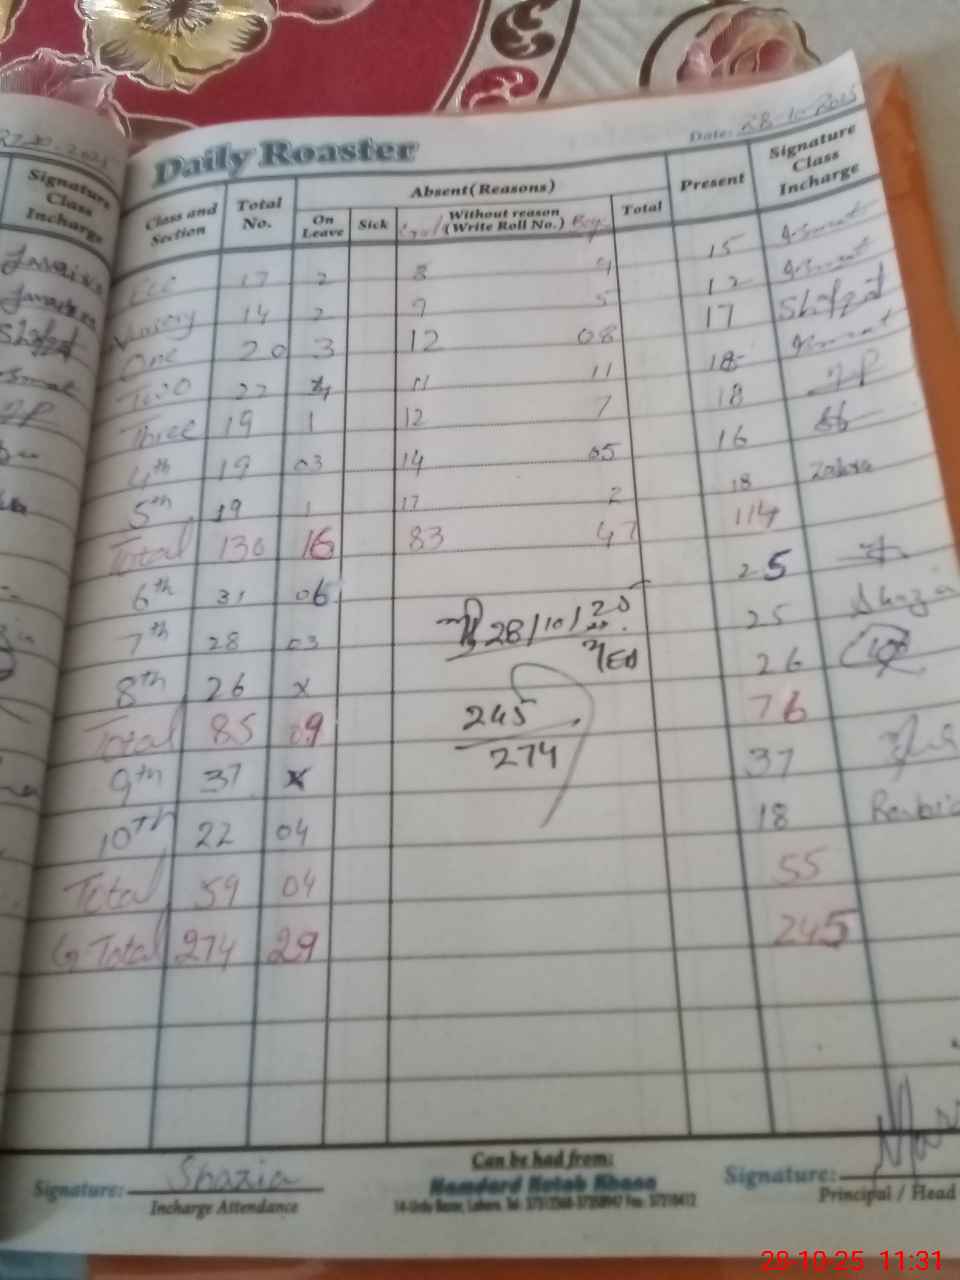 27.10.2025
Daily Roaster
Date: 28-10-2025
Signature Class Incharge
Class and Section Total No. Absent (Reasons) Present Signature Class Incharge
On Leave Sick Without reason (Write Roll No.) Boys Total
17 2 8 9 15
Nursery 14 2 9 5 12
One 20 3 12 08 17 Shafqat
Two 22 4 11 11 18
Three 19 1 12 7 18
4th 19 03 14 05 16
5th 19 1 17 2 18 Zahra
Total 130 16 83 47 114
6th 31 06 25
7th 28 03 25 Shazia
28/10/25
8th 26 x 26
Total 85 09 76
245
274
9th 37 x 37
10th 22 04 18
Total 59 04 55
G Total 274 29 245
Signature: Shazia
Incharge Attendance
Can be had from:
Hamdard Kutab Khana
14-Urdu Bazar, Lahore. Tel:
Signature:
Principal / Head
28-10-25 11:31